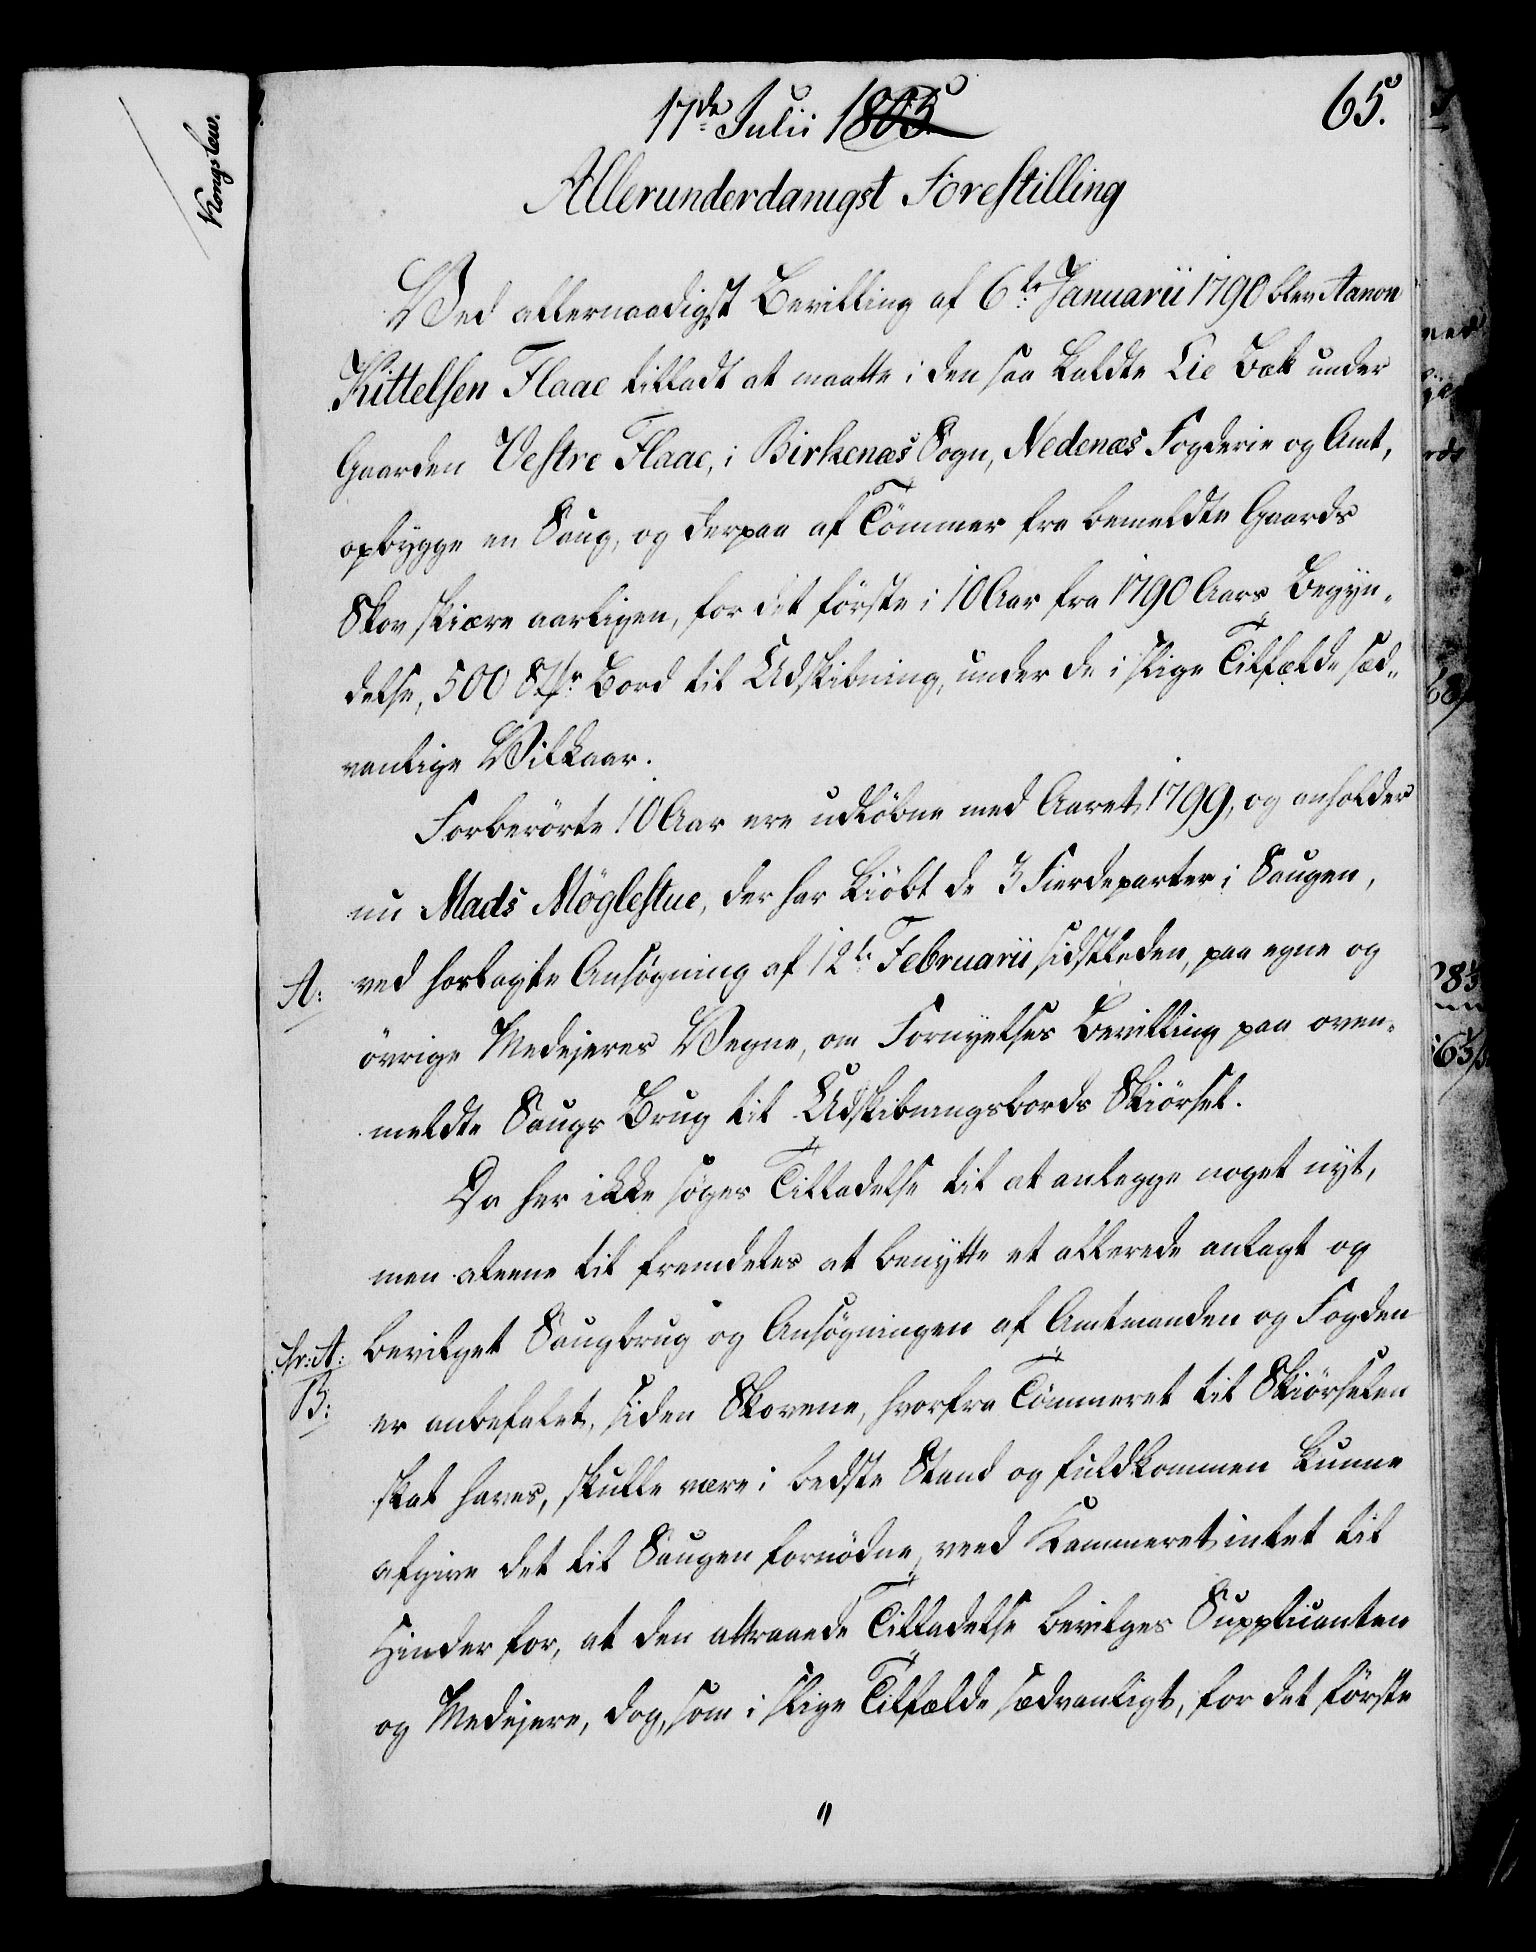 Kongslew.
17de Julii 1805
65.
Allerunderdanigst Forestilling
Ved allernaadigst Bevilling af 6te Januarii 1790 blev Aanon
Kittelsen Flaae tilladt at maatte i den saa kaldte Lie Bæk under
Gaarden Vestre Flaae, i Birkenæs Sogn, Nedenæs Fogderie og Amt,
opbygge en Saug, og derpaa af Tömmer fra bemeldte Gaards
Skov skiære aarligen, for det förste i 10 Aar fra 1790 Aars Begyn-
delse, 500 Stkr Bord til Udskibning, under de i slige Tilfælde sæd-
vanlige Vilkaar.
Forberörte 10 Aar ere udlöbne med Aaret 1799, og anholder
nu Mads Möglestue, der har kiöbt de 3 Fierdeparter i Saugen,
A: ved hoslagte Ansøgning af 12te Februarii sidstleden, paa egne og
övrige Medejeres Vegne, om Fornyelses Bevilling paa oven-
meldte Saugs Brug til Udskibningsbords Skiörsel.
Da her ikke söges Tilladelse til at anlegge noget nyt,
men alene til fremdeles at benytte et allerede anlagt og
hr: A: bevilget Saugbrug og Ansögningen af Amtmanden og Fogden
B: er anbefalet, siden Skovene, hvorfra Tömmeret til Skiörselen
skal haves, skulle være i bedste Stand og fuldkommen kunne
afgive det til Saugen fornödne, veed Kammeret intet til
Hinder for, at den attraaede Tilladelse bevilges Supplicanten
og Medejere, dog, som i slige Tilfælde sædvanligt, for det förste